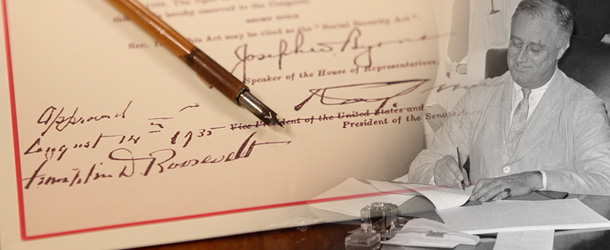 thereby reserved to the Congress.
SHORT TITLE
This Act may be cited as the "Social Security Act".
Joseph W. Byrns
Speaker of the House of Representatives.
Approved
August 14 - 1935
Franklin D. Roosevelt
Vice President of the United States and
President of the Senate